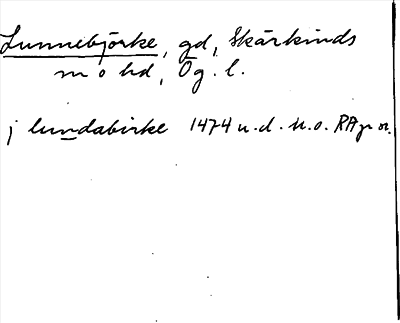 Lunnebjörke, gd, Skärkinds
sn o hd, Ög. l.
j lundabirke 1474 u. d. u. o. RAp or.